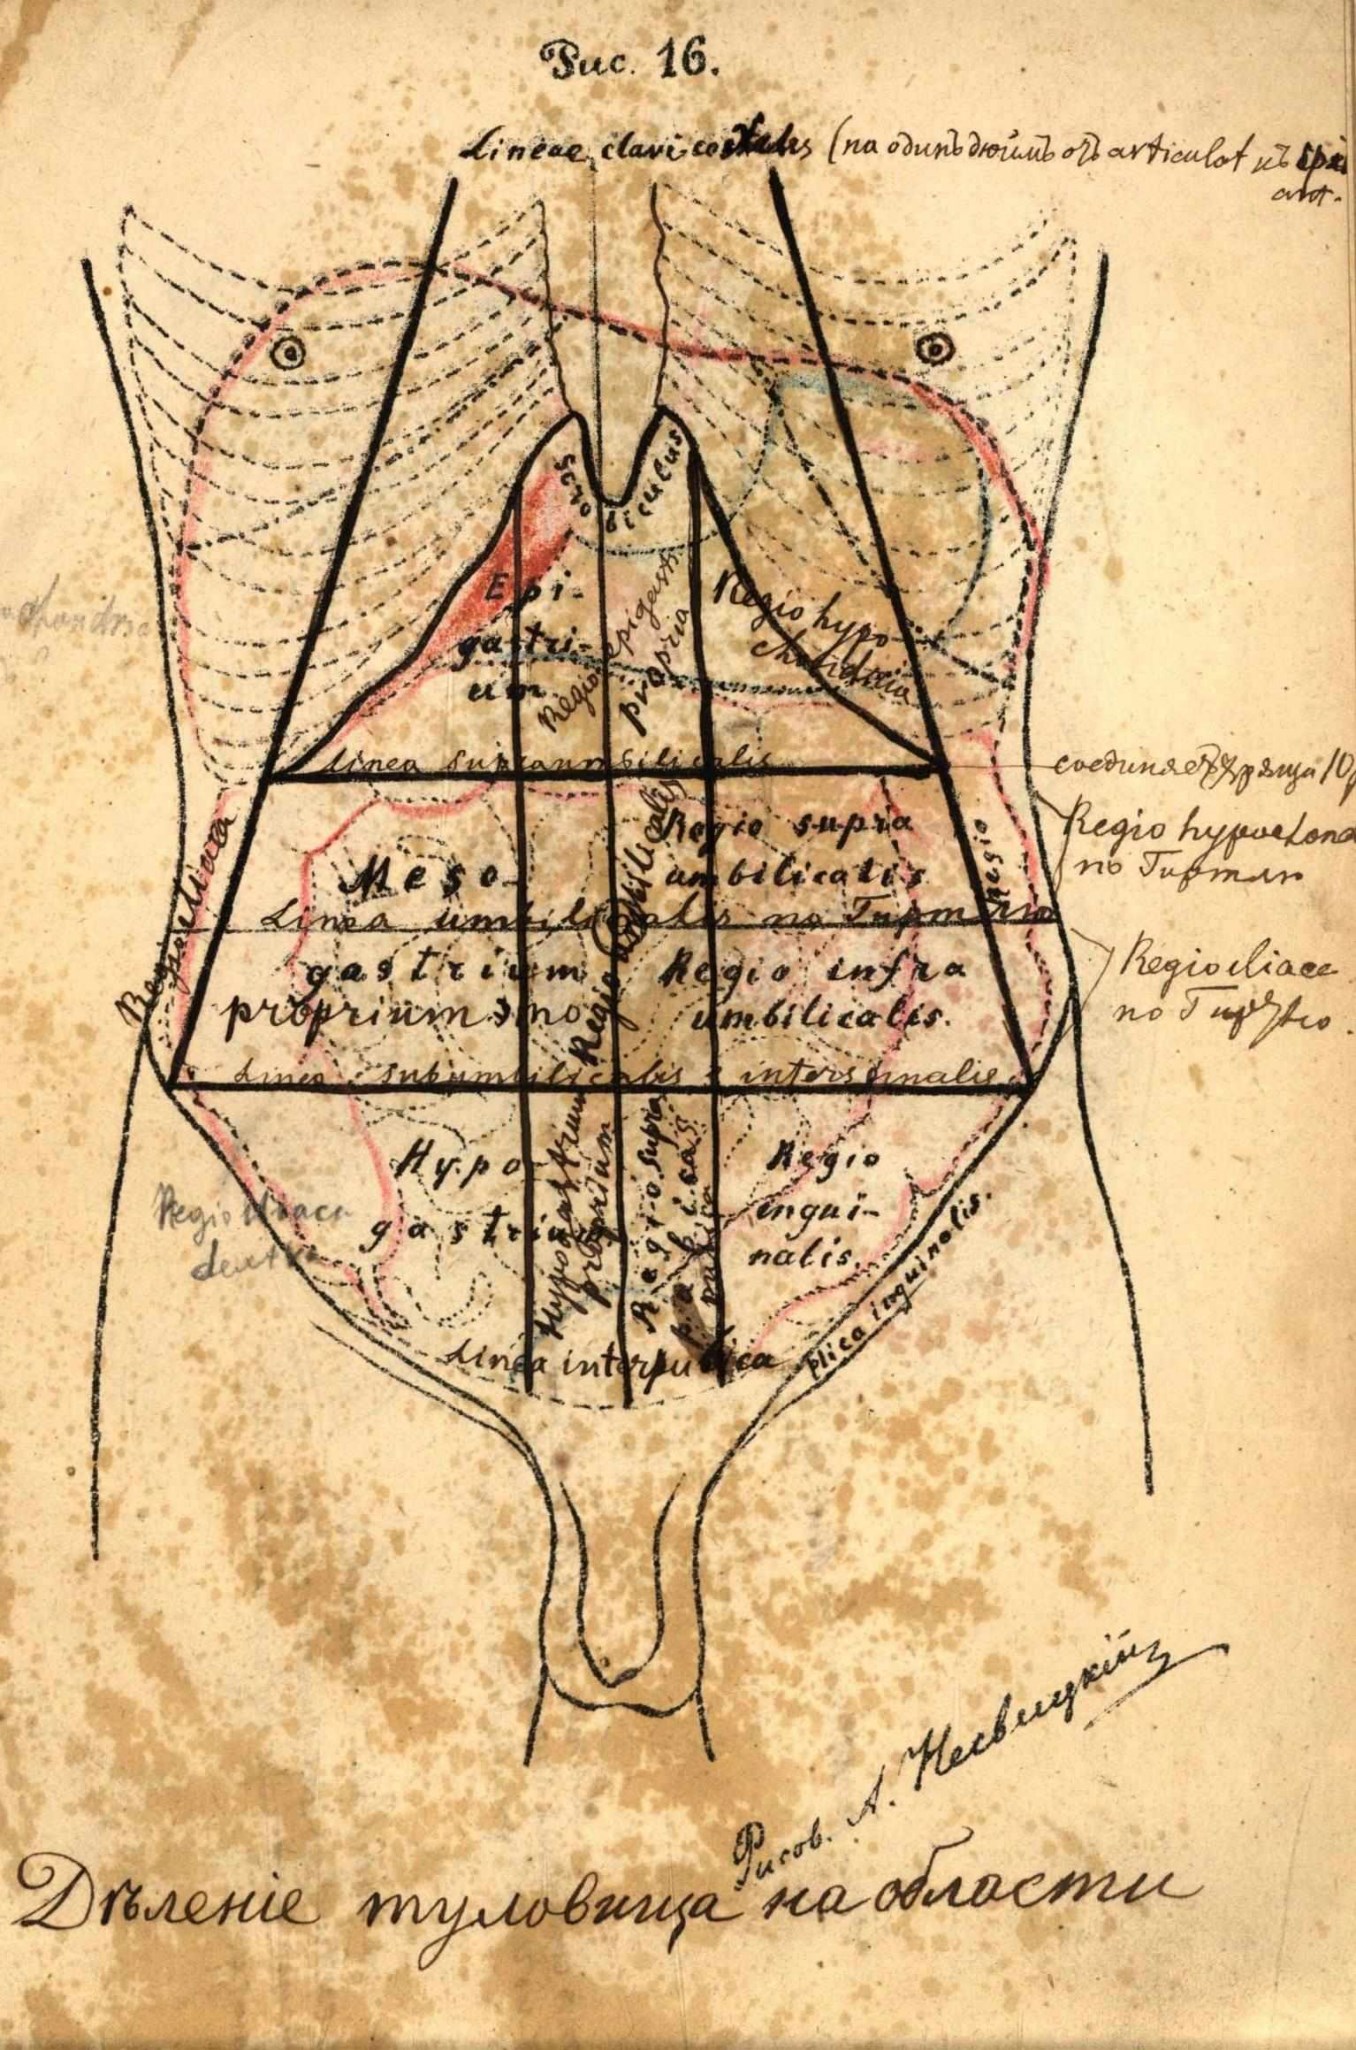 Рис. 16.
Lineae clavicostales (на одинъ дюймъ отъ articulat къ
ant.
Scrobiculus
Epi-
gastri-
um
Regio epigastri
propria
Regio hypo-
chondriaca
Linea supraumbilicalis
соединяетъ хряща 10
Regio hypochond
по Гиртлю
Regio iliaca
Regio
Meso-
Regio umbilicalis
Regio supra
umbilicalis
Linea umbilicalis по Гиртлю
gastrium
proprium
Regio infra
umbilicalis.
Regio iliace
по
Linea subumbilicalis s interspinalis
Hypo-
gastrium
Hypogastrium
proprium
Regio supra
pubica
Regio
ingui-
nalis.
Regio iliaca
dextra
Linea interpubica
plica inguinalis.
Рисов. А. Несвицкій
Дѣленіе туловища на области